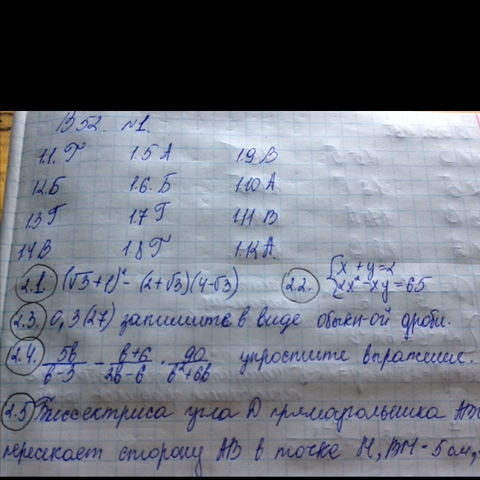 В52. №1.
1.1. Г 1.5 А 1.9 В
1.2. Б 1.6. Б 1.10 А
1.3 Г 1.7 Г 1.11 В
1.4 В 1.8 Г 1.12 А.
2.1. (√3+1)² - (2+√3)(4-√3) 2.2. {x+y=2 2x²-xy=65
2.3. 0,3(27) запишите в виде обыкн-ой дроби.
2.4. 5b/(b-3) - (b+6)/(2b-6) · 90/(b²+6b) упростите выражение.
2.5 Биссектриса угла D прямоугольника
пересекает сторону АВ в точке М, ВМ-5см,